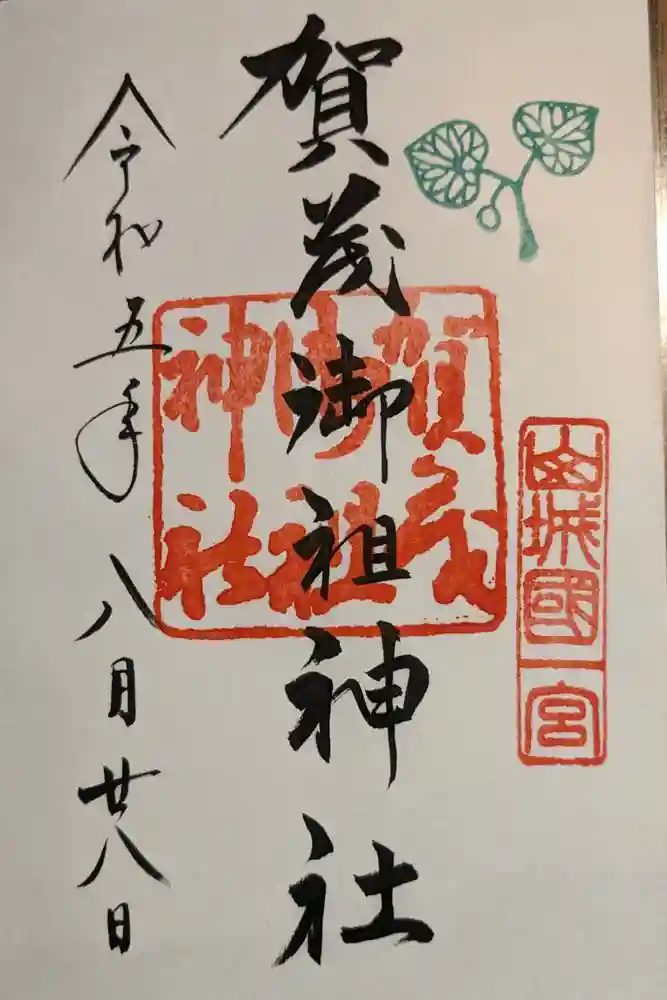 山城國一宮
賀茂御祖神社
賀茂
御祖
神社
令和五年八月廿八日